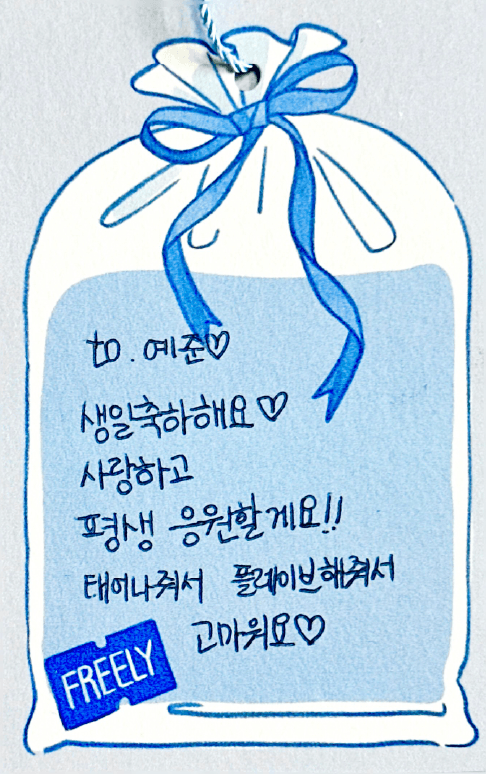 to. 예준♡
생일축하해요♡
사랑하고
평생 응원할게요!!
태어나줘서 플레이브해줘서
고마워요♡
FREELY